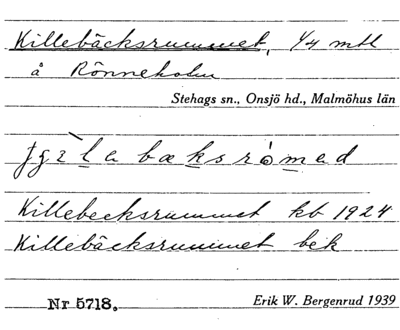 Killebäcksrummet, 1/4 mtl
å Rönneholm
Stehags sn., Onsjö hd., Malmöhus län
Killebecksrummet kb 1924
Killebäcksrummet bek
Nr 5718. Erik W. Bergenrud 1939